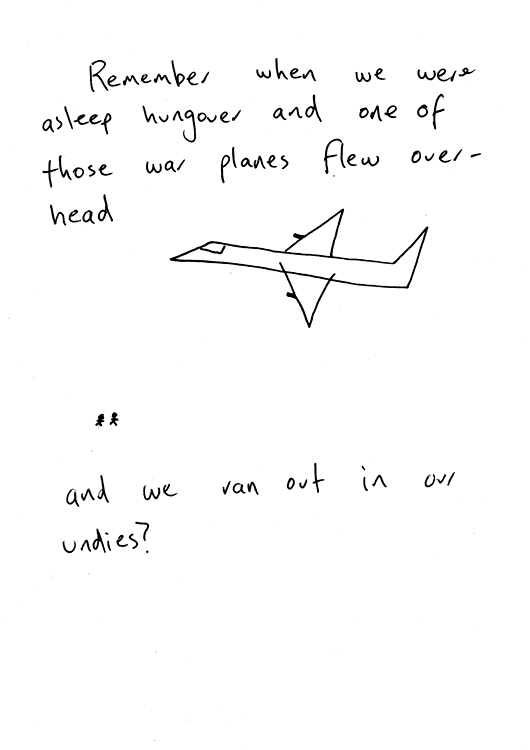 Remember when we were
asleep hungover and one of
those war planes flew over-
head
and we ran out in our
undies?